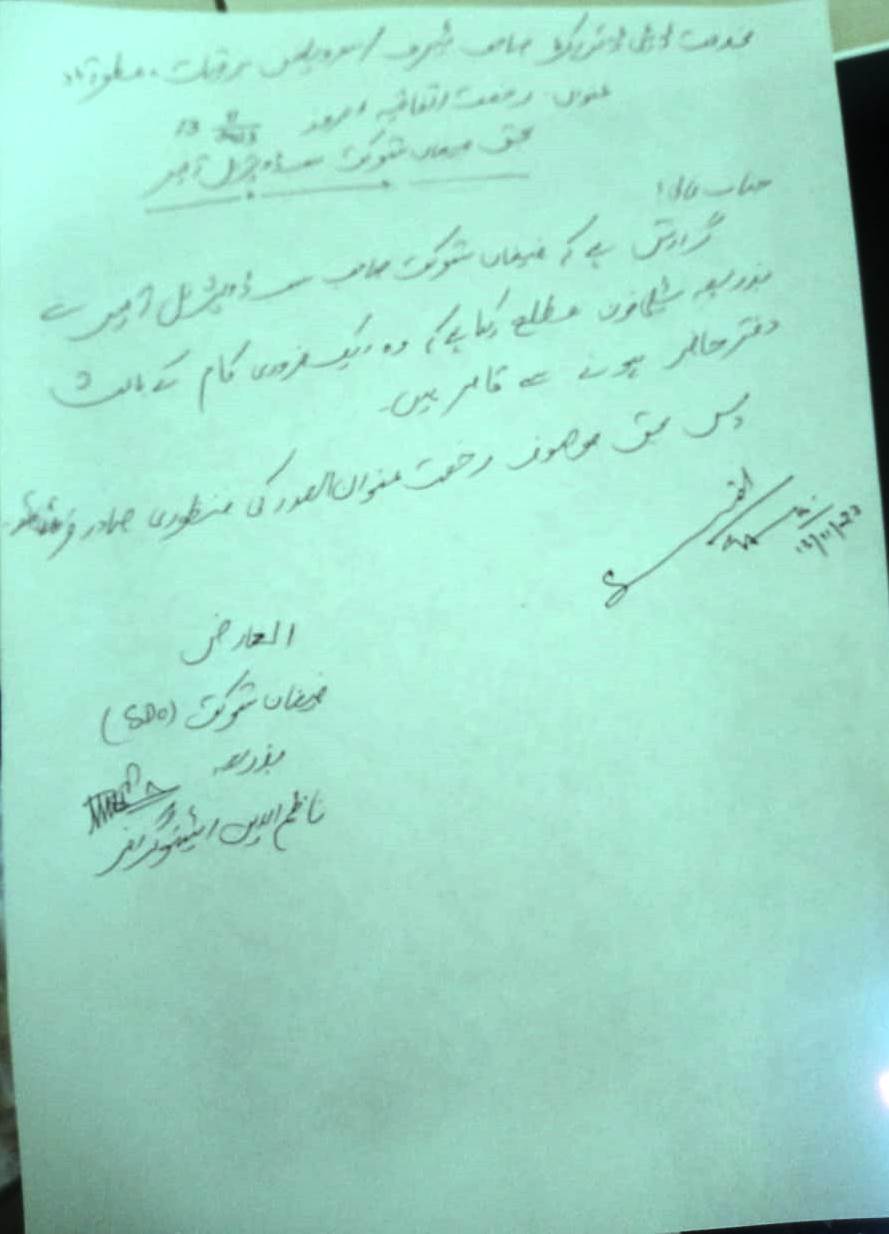 بخدمت ڈپٹی ڈائریکٹر صاحب سروسز برقیات مظفرآباد
عنوان۔ رخصت اتفاقیہ امروز 13 11/2023
بحق فیضان شوکت سب ڈویژنل آفیسر
جناب عالی!
گزارش ہے کہ فیضان شوکت صاحب سب ڈویژنل آفیسر نے
بذریعہ ٹیلی فون مطلع کیا ہے کہ وہ ایک ضروری کام کے باعث
دفتر حاضر ہونے سے قاصر ہیں۔
پس بحق موصوف رخصت عنوان الصدر کی منظوری صادر
13/11/23
العارض
فیضان شوکت (SDO)
بذریعہ
ناظم الدین اسٹینوگرافر